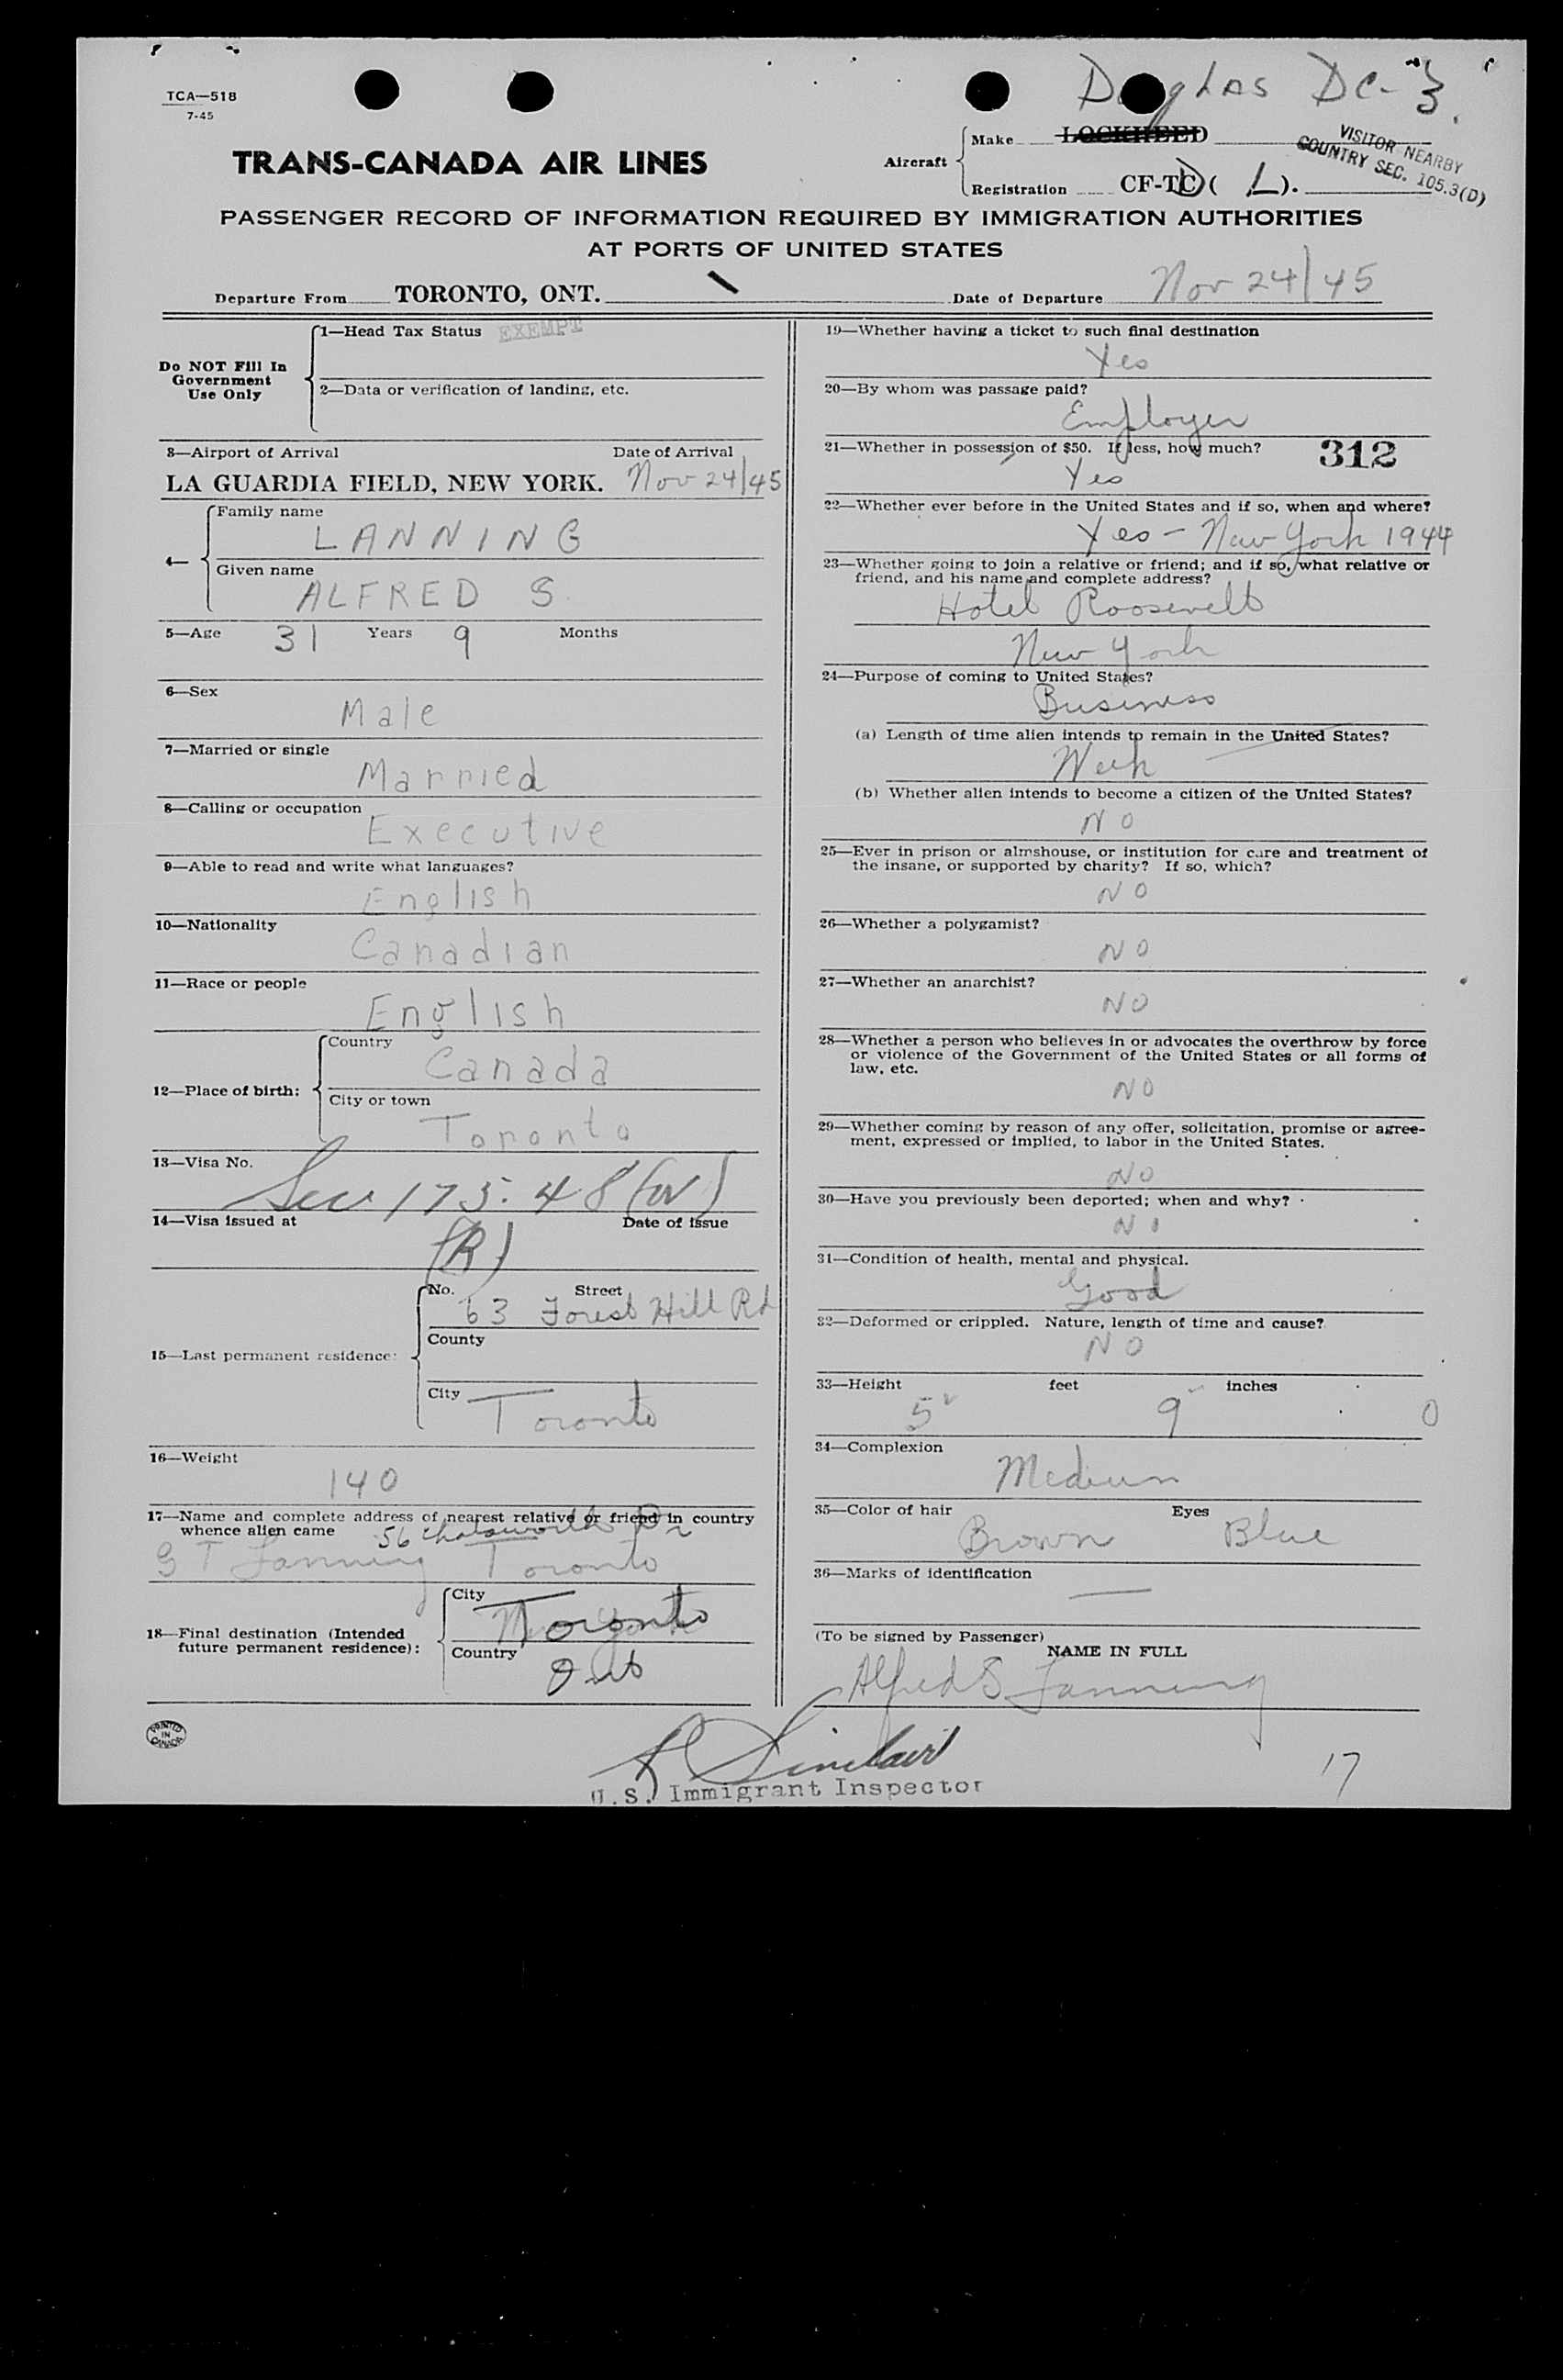 TCA—518
7-45
Douglas DC-3.
TRANS-CANADA AIR LINES
Aircraft
Make LOCKHEED
Registration CF-TC D ( L ).
VISITOR NEARBY
COUNTRY SEC. 105.3(D)
PASSENGER RECORD OF INFORMATION REQUIRED BY IMMIGRATION AUTHORITIES
AT PORTS OF UNITED STATES
Departure From TORONTO, ONT. Date of Departure Nov 24/45
Do NOT Fill In
Government
Use Only
1—Head Tax Status EXEMPT
2—Data or verification of landing, etc.
3—Airport of Arrival Date of Arrival
LA GUARDIA FIELD, NEW YORK. Nov 24/45
4—
Family name
LANNING
Given name
ALFRED S
5—Age 31 Years 9 Months
6—Sex
Male
7—Married or single
Married
8—Calling or occupation
Executive
9—Able to read and write what languages?
English
10—Nationality
Canadian
11—Race or people
English
12—Place of birth:
Country
Canada
City or town
Toronto
13—Visa No.
Sec 175.48 (W)
14—Visa issued at Date of issue
(R)
15—Last permanent residence:
No. Street
63 Forest Hill Rd
County
City
Toronto
16—Weight
140
17—Name and complete address of nearest relative or friend in country
whence alien came 56 Chatsworth Dr
G T Lanning Toronto
18—Final destination (Intended
future permanent residence):
City
Toronto
Country
Ont
19—Whether having a ticket to such final destination
Yes
20—By whom was passage paid?
Employer
21—Whether in possession of $50. If less, how much? 312
Yes
22—Whether ever before in the United States and if so, when and where?
Yes – New York 1944
23—Whether going to join a relative or friend; and if so, what relative or
friend, and his name and complete address?
Hotel Roosevelt
New York
24—Purpose of coming to United States?
Business
(a) Length of time alien intends to remain in the United States?
Week
(b) Whether alien intends to become a citizen of the United States?
NO
25—Ever in prison or almshouse, or institution for care and treatment of
the insane, or supported by charity? If so, which?
NO
26—Whether a polygamist?
NO
27—Whether an anarchist?
NO
28—Whether a person who believes in or advocates the overthrow by force
or violence of the Government of the United States or all forms of
law, etc.
NO
29—Whether coming by reason of any offer, solicitation, promise or agree-
ment, expressed or implied, to labor in the United States.
NO
30—Have you previously been deported; when and why?
NO
31—Condition of health, mental and physical.
Good
32—Deformed or crippled. Nature, length of time and cause?
NO
33—Height feet inches
5 9 0
34—Complexion
Medium
35—Color of hair Eyes
Brown Blue
36—Marks of identification
—
(To be signed by Passenger)
NAME IN FULL
Alfred S Lanning
PRINTED
IN
CANADA
R Sinclair
U.S. Immigrant Inspector
17